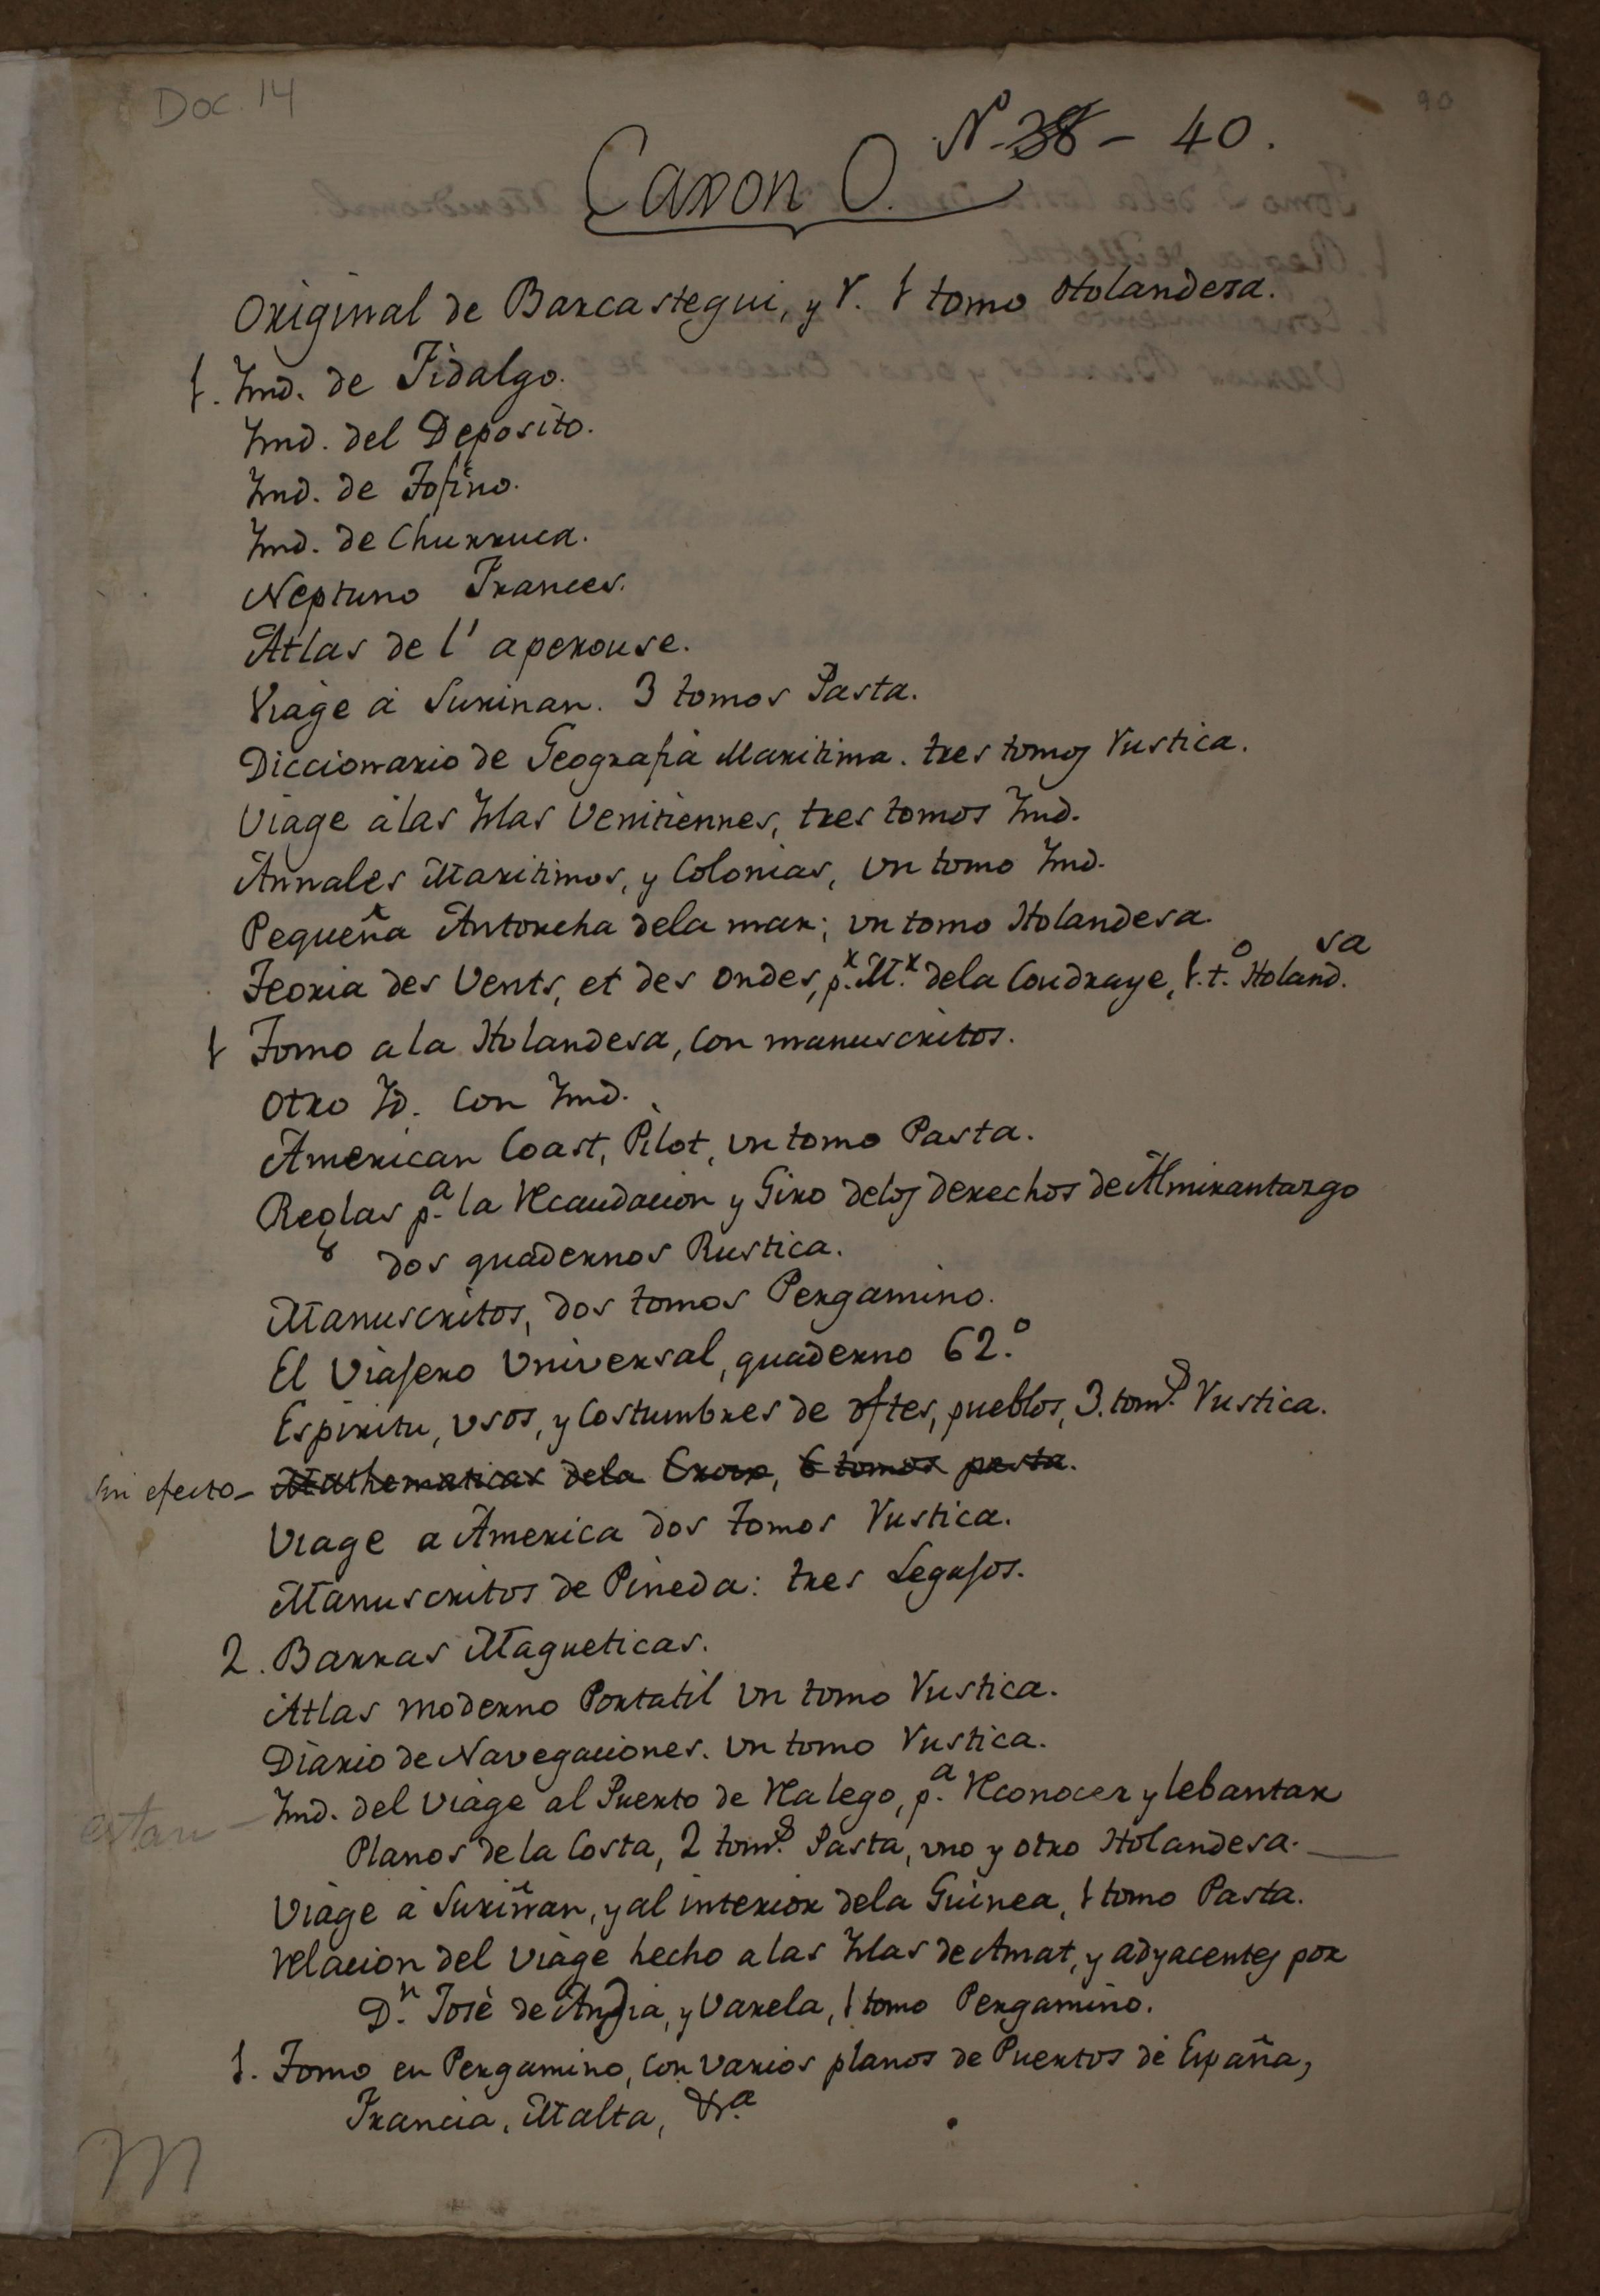 Doc. 14
90
N. 38 - 40.
Caxon O.
Original de Barcastegui, y V. 1 tomo Holandesa.
1. Ymd. de Fidalgo.
Ymd. del Deposito.
Ymd. de Tofino.
Ymd. de Churruca.
Neptuno Frances.
Atlas de l' aperouse.
Viage á Surinan. 3 tomos Pasta.
Diccionario de Geografia Maritima. tres tomos Rustica.
Viage á las Yslas Venitiennes, tres tomos Ymd.
Annales Maritimos, y Colonias, un tomo Ymd.
Pequeña Antorcha dela mar; un tomo Holandesa
Teoria des Vents, et des ondes, p.r M.r dela Coudraye, 1. t.o Holand.sa
1 Tomo a la Holandesa, con manuscritos.
Otro Yd. con Ymd.
American Coast, Pilot, un tomo Pasta.
Reglas p.a la Recaudacion y Giro delos derechos de Almirantazgo
dos quadernos Rustica.
Manuscritos, dos tomos Pergamino.
El Viajero Universal, quaderno 62.o
Espiritu, usos, y Costumbres de dftes, pueblos, 3. tom.s Rustica.
Sin efecto - Mathematicas dela Croix, 6 tomos pasta.
Viage a America dos tomos Rustica.
Manuscritos de Pineda: tres Legajos.
2. Barras Magneticas.
Atlas moderno Portatil un tomo Rustica.
Diario de Navegaciones. un tomo Rustica.
estan - Ymd. del Viage al Puerto de Realego, p.a Reconocer y lebantar
Planos de la Costa, 2 tom.s Pasta, uno y otro Holandesa.
Viage á Suriñan, y al interior dela Guinea, 1 tomo Pasta.
Relacion del Viage hecho a las Yslas de Amat, y adyacentes por
D.n José de Andia, y Varela, 1 tomo Pergamino.
1. Tomo en Pergamino, con varios planos de Puertos de España,
Francia, Malta, &.a
M